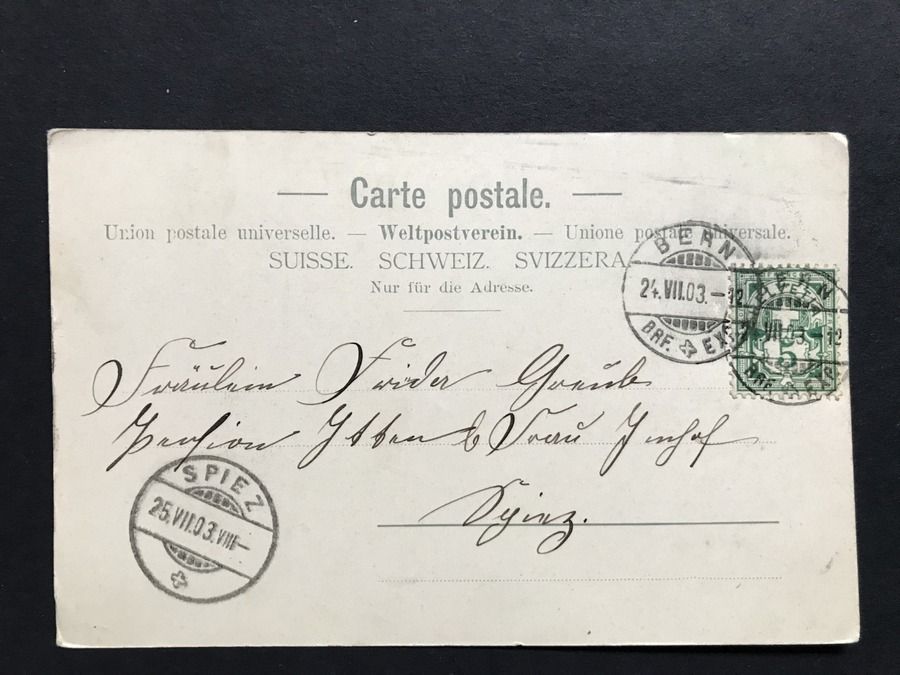 — Carte postale. —
Union postale universelle. — Weltpostverein. — Unione postale universale.
SUISSE. SCHWEIZ. SVIZZERA
Nur für die Adresse.
BERN
24.VII.03.–12
BRF. EXP.
BERN
HELVETIA
VII.03.–12
5
BRF. EXP.
Fräulein Frida Greub
Pension Itten b/ Frau Imhof
Spiez.
SPIEZ
25.VII.03.VIII–